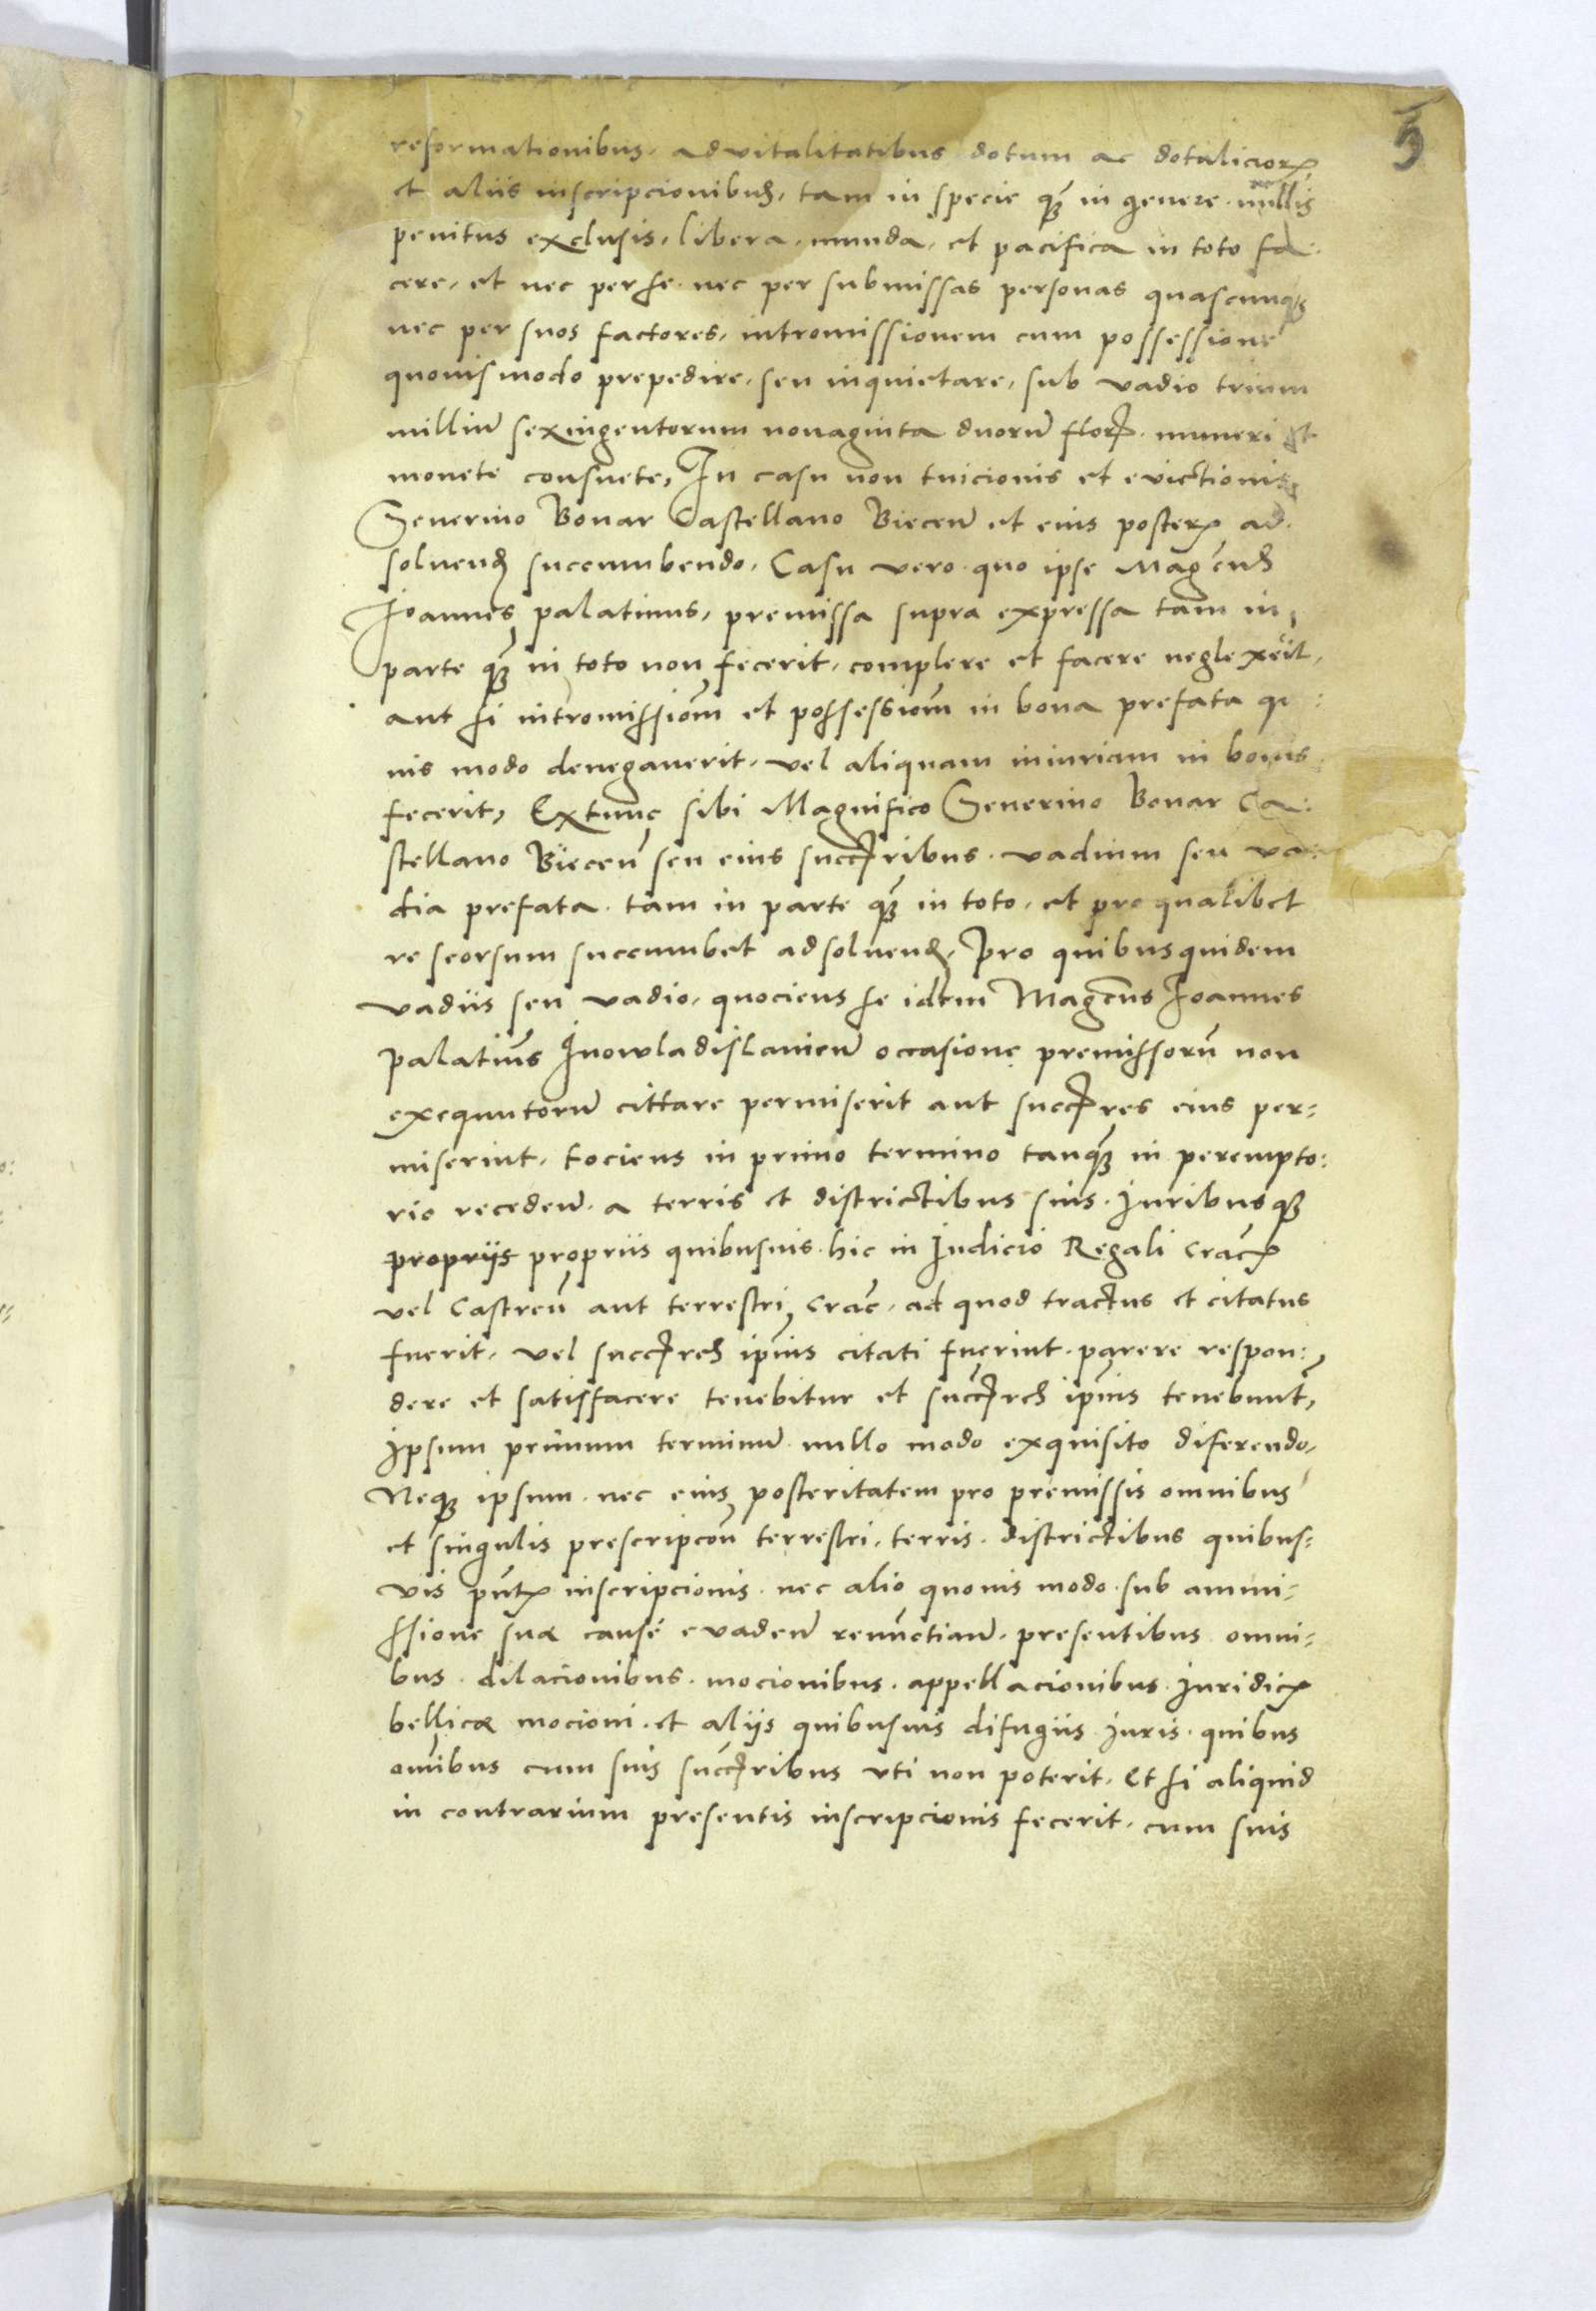 3
reformationibus, advitalitatibus dotum ac dotaliciorꝝ
et aliis inscripcionibus, tam in specie qꝫ in genere nullis
penitus exclusis, libera, munda, et pacifica in toto fa:
cere, et nec per se nec per submissas personas quascunqꝫ
nec per suos factores, intromissionem cum possessione
quouis modo prepedire, seu inquietare, sub vadio trium
milliū sexingentorum nonaginta duorū flor. numeri et
monete consuete, In casu non tuicionis et evictionis
Seuerino Bonar Castellano Biecen̄ et eius posterꝝ ad
soluend̄ succumbendo, Casu vero quo ipse Mag̃cus
Joannes palatinus, premissa supra expressa tam in
parte qꝫ in toto non fecerit, complere et facere neglexerit,
aut si intromissiom̄ et possessiom̄ in bona prefata
uis modo denegauerit, vel aliquam iniuriam in bonis
fecerit, Extunc sibi Magnifico Seuerino Bonar Ca:
stellano Biecen̄ seu eius succribus vadium seu va:
dia prefata tam in parte qꝫ in toto, et pro qualibet
re seorsum succumbet ad soluend̄, Pro quibusquidem
vadiis seu vadio, quociens se idem Mag̃cus Joannes
palatin̄s Inowladislauien̄ occasione premissorū non
exequutorū cittare permiserit aut succres eius per=
miserint, tociens in primo termino tanqꝫ in perempto:
rio recedeñ a terris et districtibus suis Juribusqꝫ
propriis propriis quibusuis hic in Judicio Regali Crac̄
vel Castren̄ aut terrestri Crac̄, ad quod tractus et citatus
fuerit, vel succres ip̄ius citati fuerint parere respon:
dere et satisfacere tenebitur et succres ip̄ius tenebunt̄,
Ipsum primum terminū nullo modo exquisito diferendo,
Neqꝫ ipsum nec eius posteritatem pro premissis omnibus
et singulis prescripcoñ terrestri, terris districtibus quibus=
vis pn̄tꝝ inscripcionis nec alio quouis modo sub ammi=
ssione suæ cause evadeñ renunctiañ, presentibus omni=
bus dilacionibus mocionibus appellacionibus Juridicꝝ
bellicæ mocioni et aliis quibusuis difugiis Juris quibus
om̄ibus cum suis succribus vti non poterit, Et si aliquid
in contrarium presentis inscripcionis fecerit, cum suis